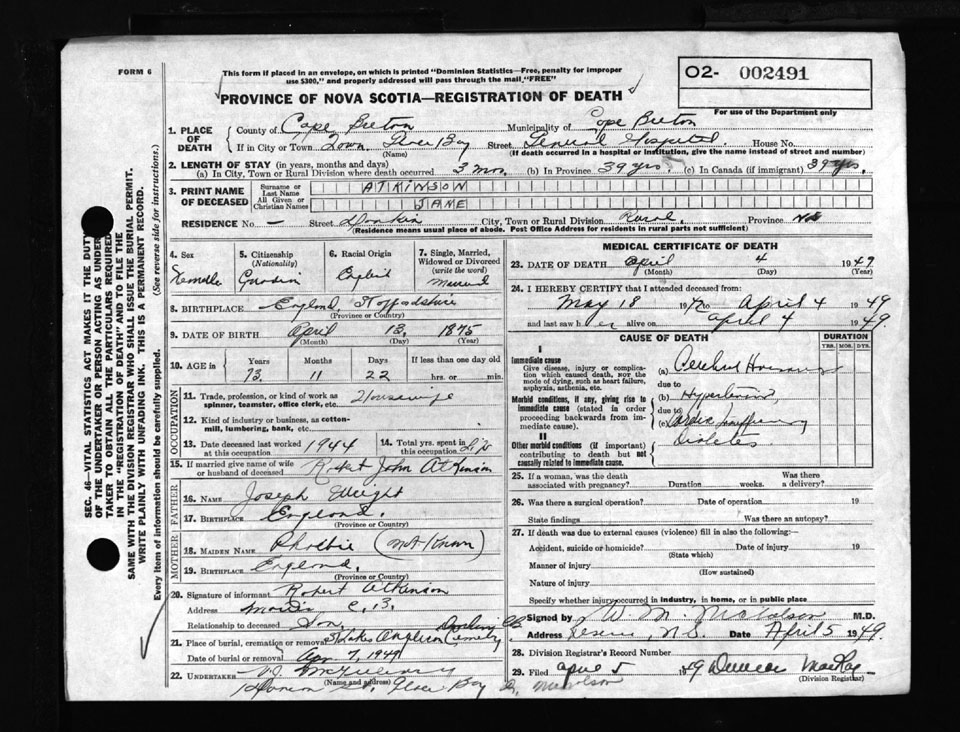 FORM 6
This form if placed in an envelope, on which is printed "Dominion Statistics—Free, penalty for improper
use $300," and properly addressed will pass through the mail "FREE"
O2- 002491
For use of the Department only
PROVINCE OF NOVA SCOTIA—REGISTRATION OF DEATH
1. PLACE OF DEATH
County of Cape Breton Municipality of Cape Breton
If in City or Town Town Glace Bay Street General Hospital House No.
(Name) (If death occurred in a hospital or institution, give the name instead of street and number)
2. LENGTH OF STAY (in years, months and days)
(a) In City, Town or Rural Division where death occurred 3 mos. (b) In Province 39 yrs. (c) In Canada (if immigrant) 39 yrs.
3. PRINT NAME OF DECEASED
Surname or Last Name ATKINSON
All Given or Christian Names JANE
RESIDENCE No. — Street Donkin City, Town or Rural Division Rural. Province N.S.
(Residence means usual place of abode. Post Office Address for residents in rural parts not sufficient)
4. Sex Female
5. Citizenship (Nationality) Canadian
6. Racial Origin English
7. Single, Married, Widowed or Divorced (write the word) Married
8. BIRTHPLACE England, Staffordshire
(Province or Country)
9. DATE OF BIRTH April 13, 1875
(Month) (Day) (Year)
10. AGE in Years 73 Months 11 Days 22 If less than one day old hrs. or min.
OCCUPATION
11. Trade, profession, or kind of work as spinner, teamster, office clerk, etc. Housewife
12. Kind of industry or business, as cotton-mill, lumbering, bank, etc.
13. Date deceased last worked at this occupation 1944 14. Total yrs. spent in this occupation Life
15. If married give name of wife or husband of deceased Robert John Atkinson
FATHER
16. NAME Joseph Wright
17. BIRTHPLACE England.
(Province or Country)
MOTHER
18. MAIDEN NAME Phoebie (Not Known)
19. BIRTHPLACE England.
(Province or Country)
20. Signature of informant Robert Atkinson
Address C. B.
Relationship to deceased Son.
21. Place of burial, cremation or removal St Lukes Anglican Cemetery
Date of burial or removal Apr 7, 1949
22. UNDERTAKER
(Name and address)
Glace Bay
MEDICAL CERTIFICATE OF DEATH
23. DATE OF DEATH April 4 1949
(Month) (Day) (Year)
24. I HEREBY CERTIFY that I attended deceased from:
May 18 19 to April 4 1949
and last saw her alive on April 4 1949.
CAUSE OF DEATH DURATION
YRS. MOS. DYS.
I
Immediate cause
Give disease, injury or complication which caused death, NOT the mode of dying, such as heart failure, asphyxia, asthenia, etc.
(a) Cerebral Hemorrhage
due to
Morbid conditions, if any, giving rise to immediate cause (stated in order proceeding backwards from immediate cause).
(b) Hypertension
due to
(c) Cardiac Insufficiency
II
Other morbid conditions (if important) contributing to death but not causally related to immediate cause.
Diabetes
25. If a woman, was the death associated with pregnancy? Duration weeks. Was there a delivery?
26. Was there a surgical operation? Date of operation 19
State findings Was there an autopsy?
27. If death was due to external causes (violence) fill in also the following:
Accident, suicide or homicide? Date of injury 19
(State which)
Manner of injury
(How sustained)
Nature of injury
Specify whether injury occurred in industry, in home, or in public place
Signed by W. M. Nicholson M.D.
Address Reserve, N.S. Date April 5 1949
28. Division Registrar's Record Number
29. Filed April 5 1949 Duncan MacKay
(Division Registrar)
Nicholson
SEC. 46—VITAL STATISTICS ACT MAKES IT THE DUTY
OF THE UNDERTAKER OR PERSON ACTING AS UNDER-
TAKER TO OBTAIN ALL THE PARTICULARS REQUIRED
IN THE "REGISTRATION OF DEATH" AND TO FILE THE
SAME WITH THE DIVISION REGISTRAR WHO SHALL ISSUE THE BURIAL PERMIT.
WRITE PLAINLY WITH UNFADING INK. THIS IS A PERMANENT RECORD.
Every item of information should be carefully supplied. (See reverse side for instructions.)